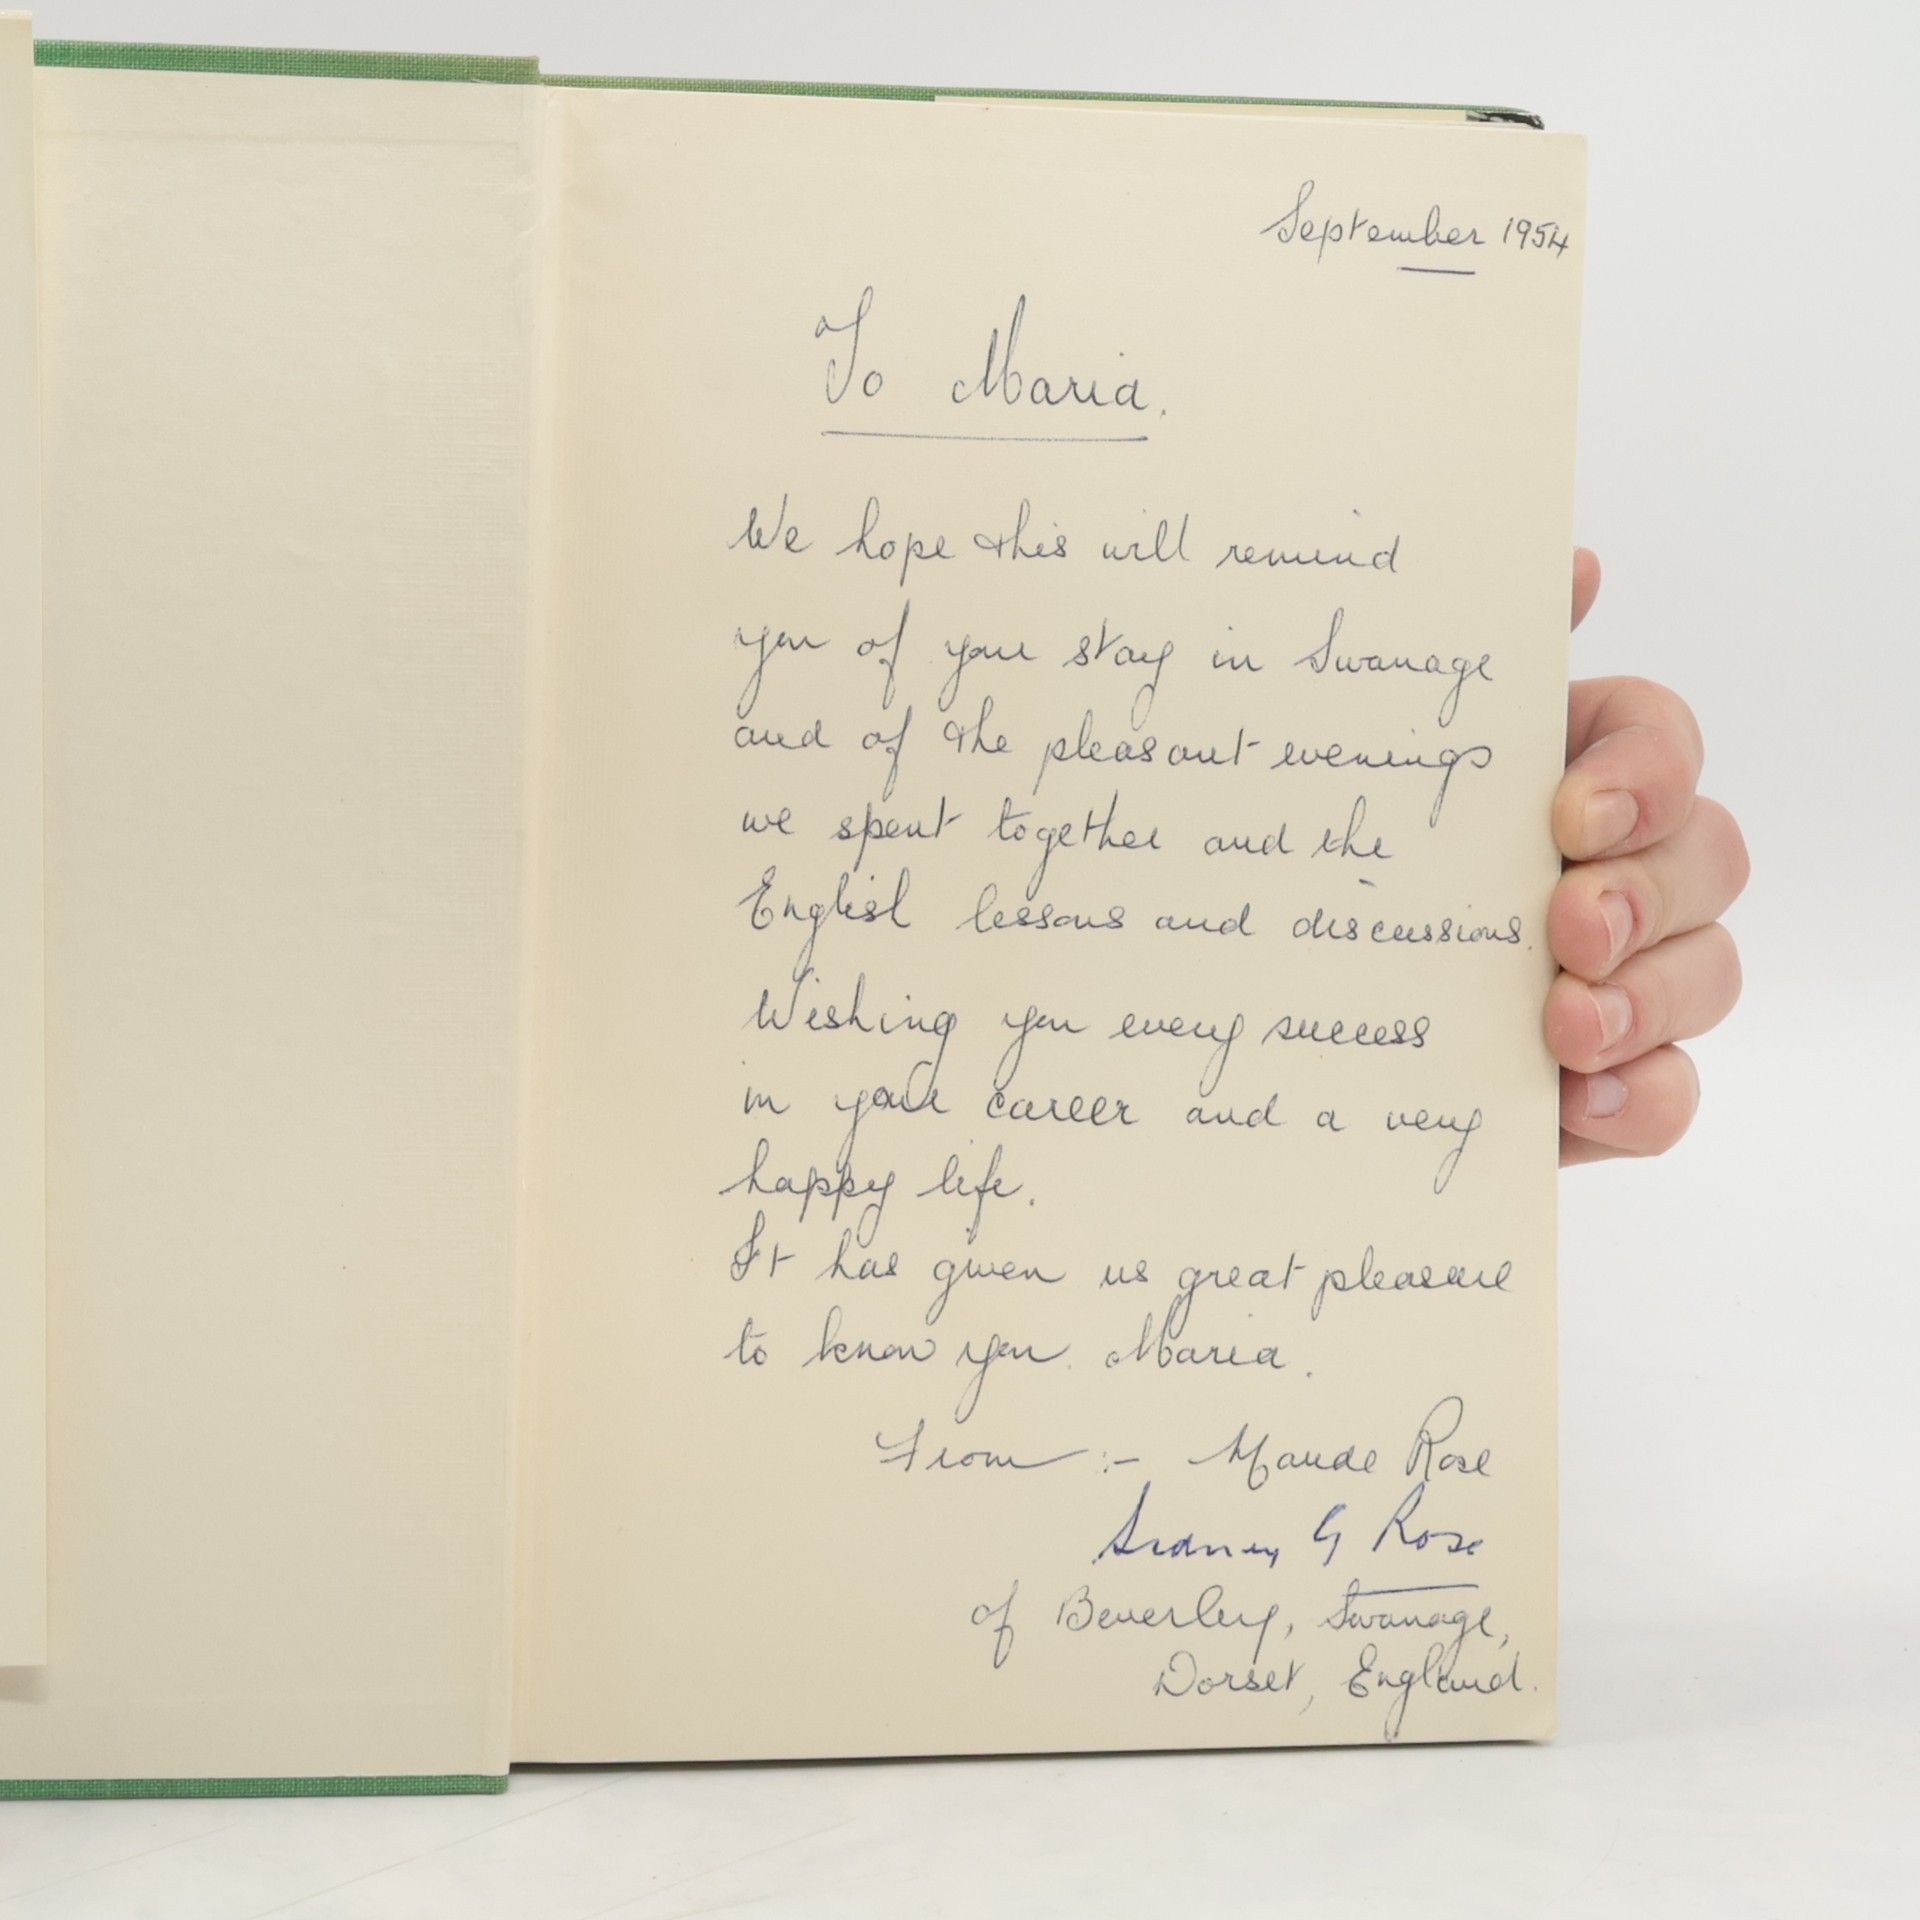 September 1954
To Maria.
We hope this will remind
you of your stay in Swanage
and of the pleasant evenings
we spent together and the
English lessons and discussions.
Wishing you every success
in your career and a very
happy life.
It has given us great pleasure
to know you. Maria.
From :- Maude Rose
Sidney G Rose
of Beverley, Swanage,
Dorset, England.